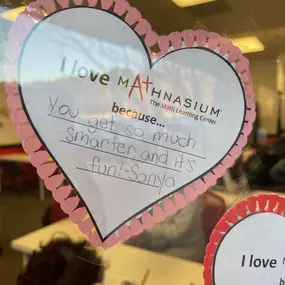 I love MATHNASIUM
The Math Learning Center
because...
You get so much
smarter, and it's
fun!-Sanya
I love